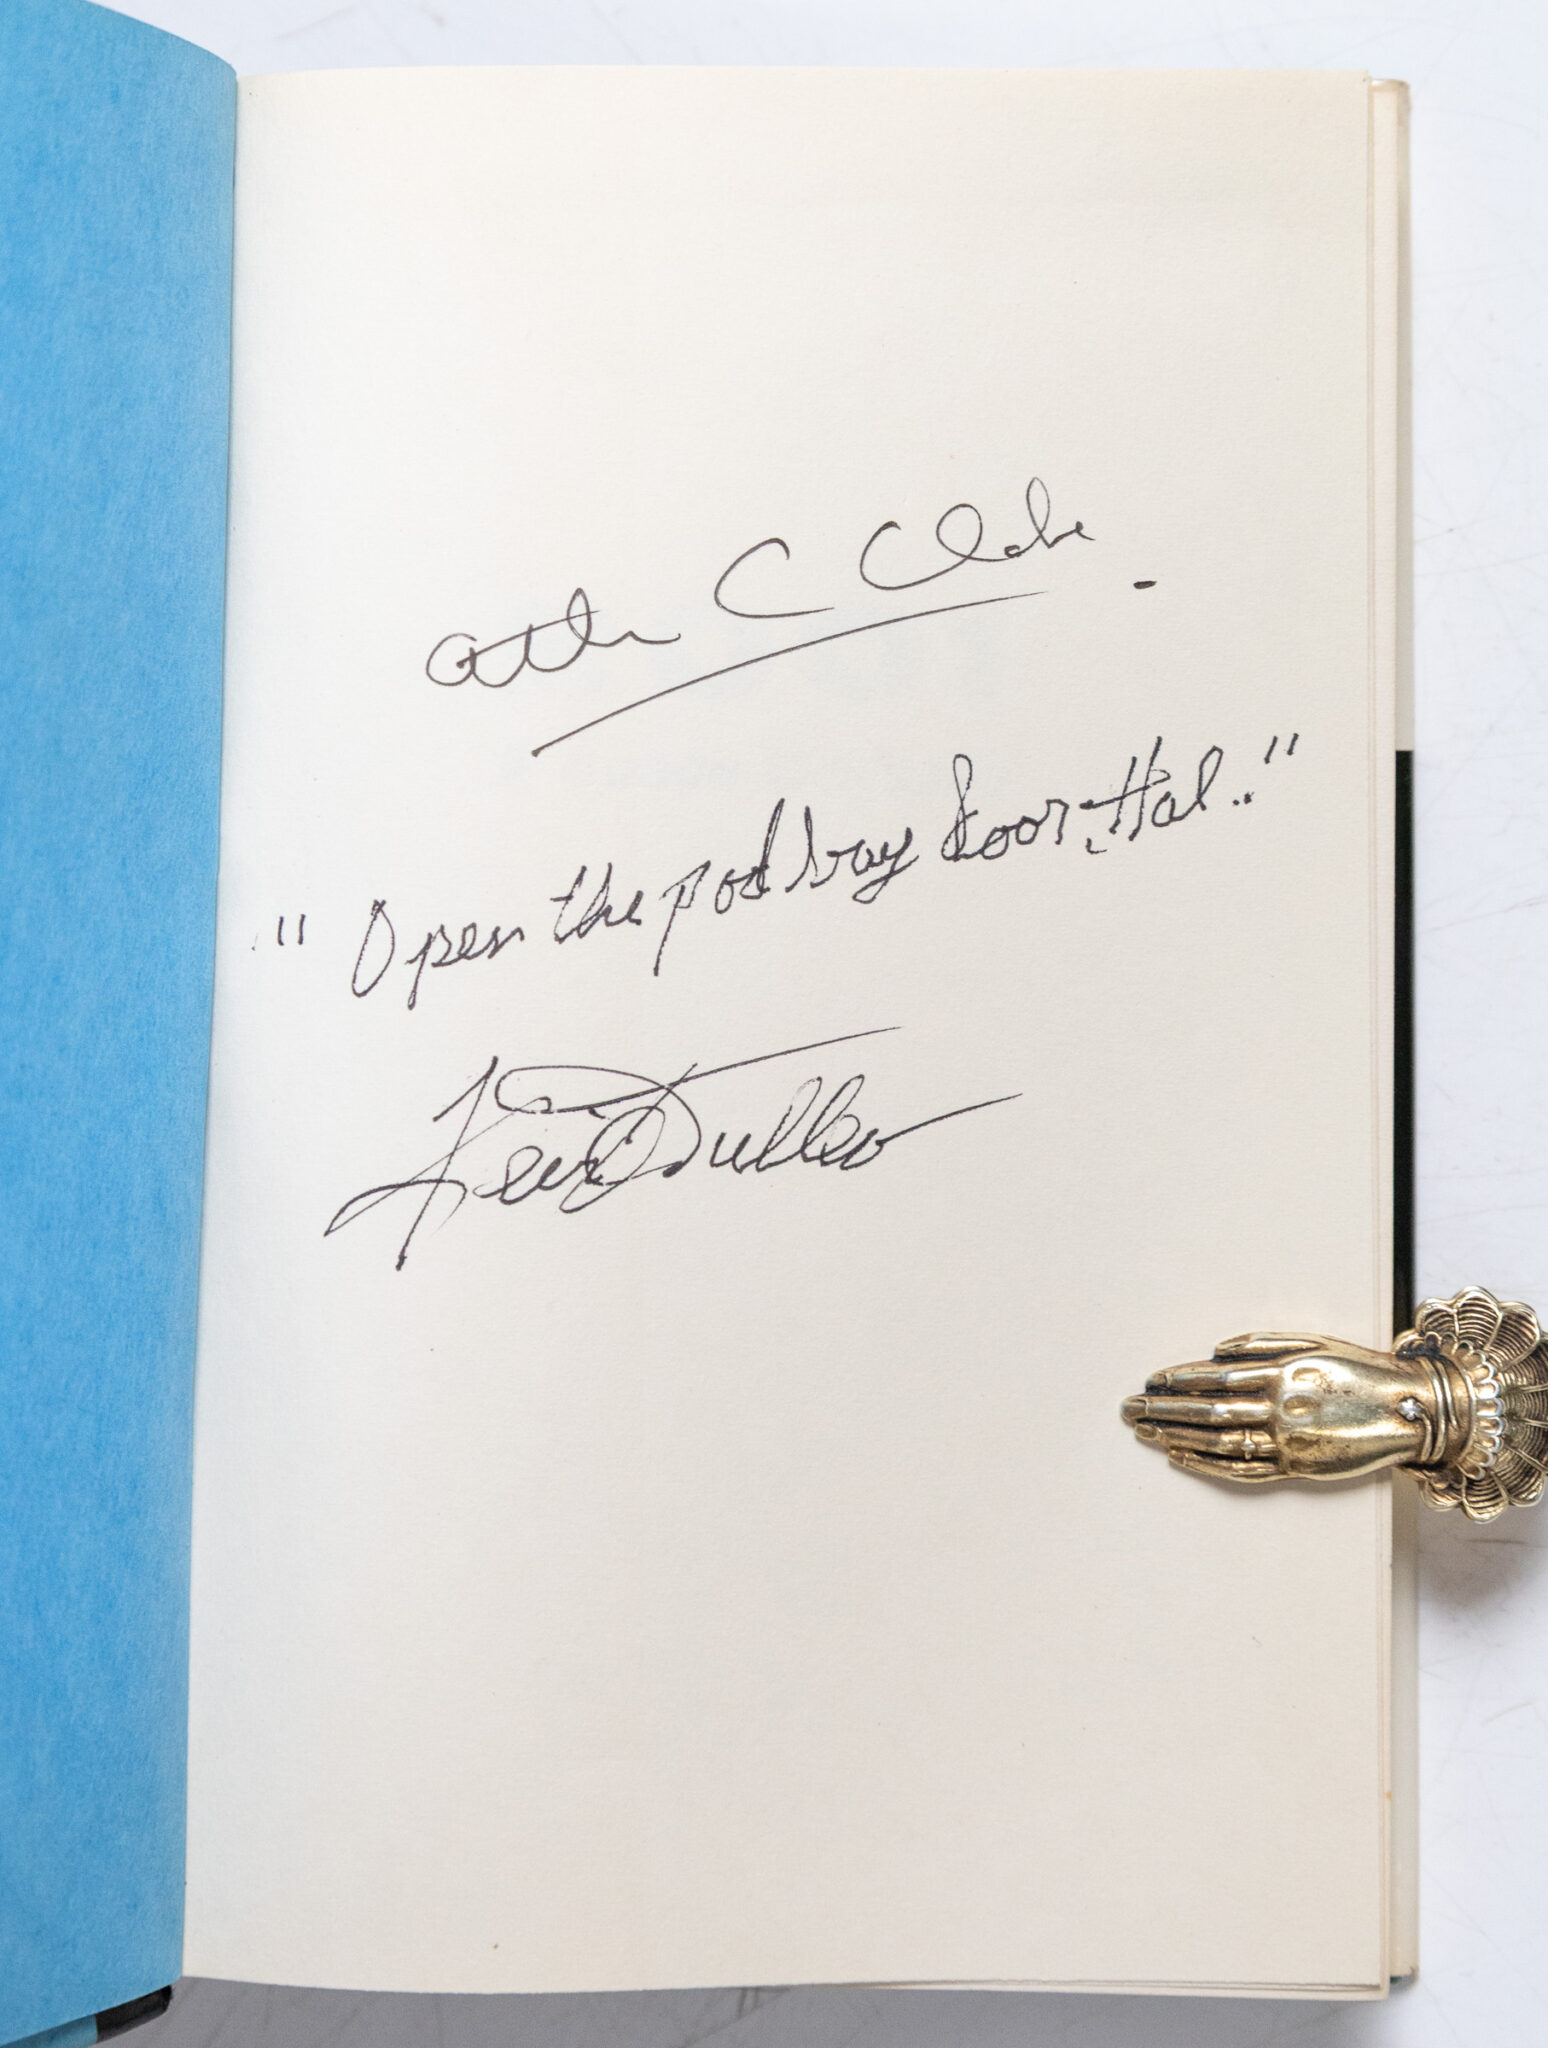 Arthur C Clarke
"Open the pod bay door, Hal.."
Keir Dullea